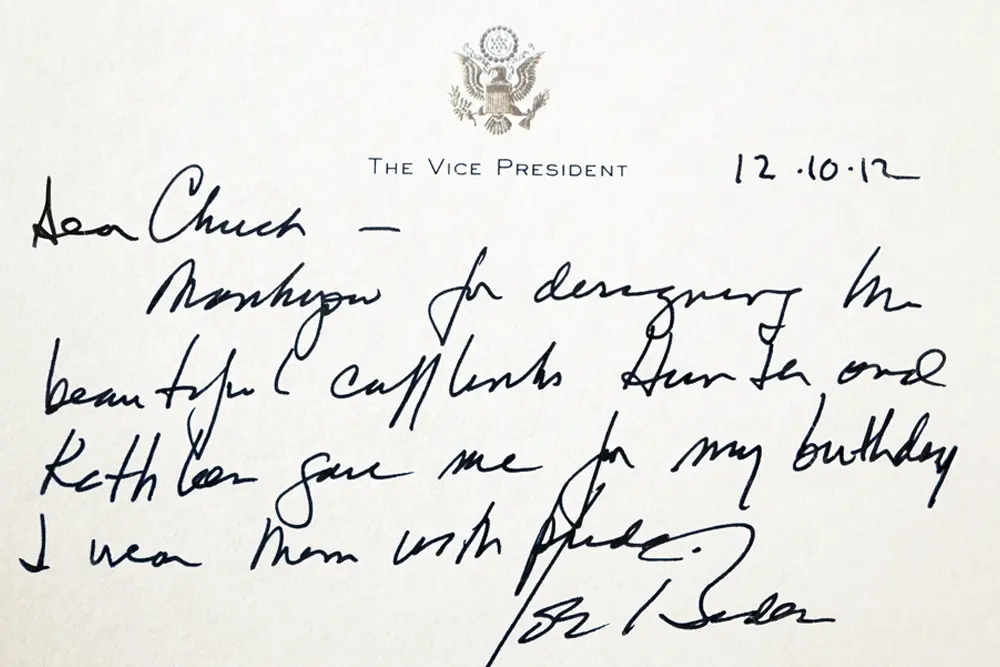 THE VICE PRESIDENT
12.10.12
Dear Chuck —
Thank you for designing the
beautiful cufflinks Hunter and
Kathleen gave me for my birthday
I wear them with pride.
Joe Biden